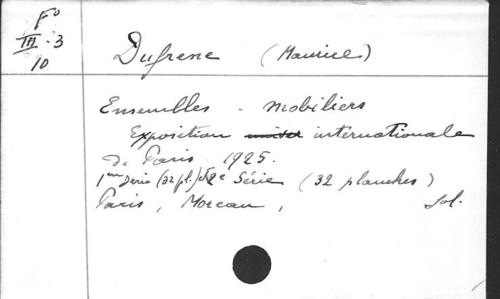 Fo
III.3
10
Dufrene (Maurice)
Ensembles - mobiliers
Exposition internationale
de Paris 1925.
1ère Série (32 pl.) et 2e Série (32 planches)
Paris, Moreau, fol.